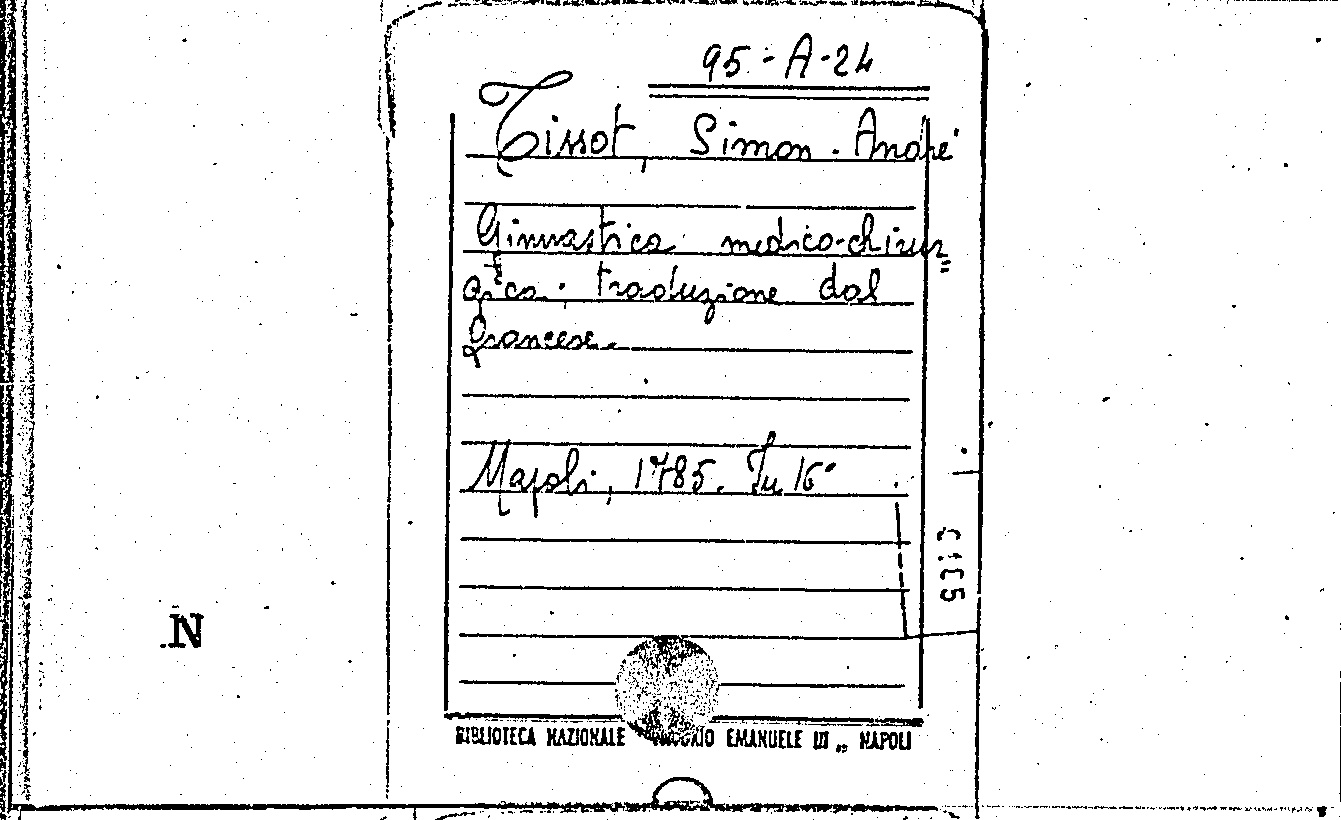 95-A-24
Tissot, Simon-André
Ginnastica medico-chirur„
gica; traduzione dal
francese.
Napoli, 1785. In 16°
N
BIBLIOTECA NAZIONALE EMANUELE III „ NAPOLI